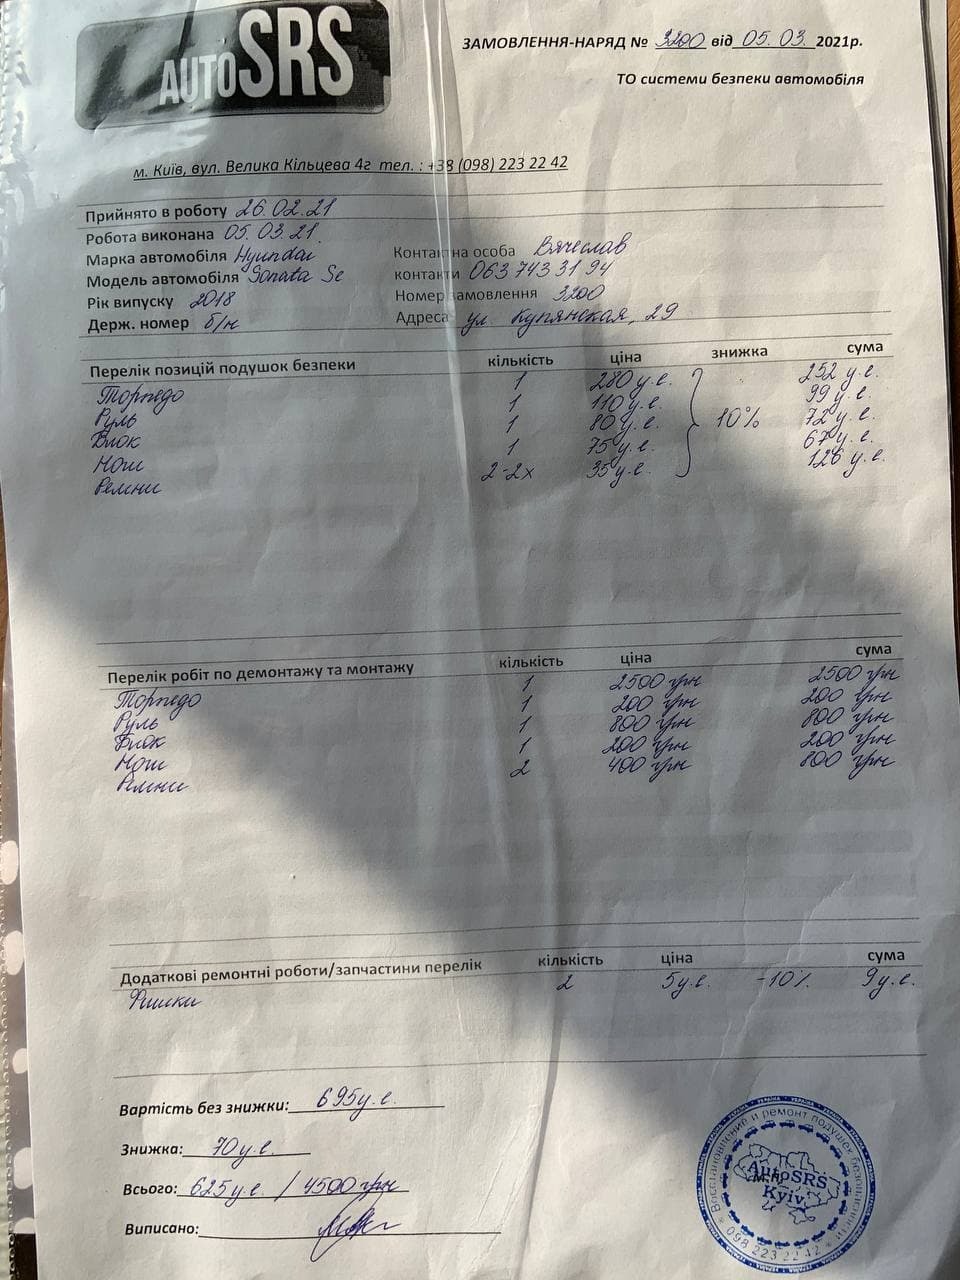 AUTO SRS
ЗАМОВЛЕННЯ-НАРЯД № 3200 від 05. 03. 2021р.
ТО системи безпеки автомобіля
м. Київ, вул. Велика Кільцева 4г тел. : +38 (098) 223 22 42
Прийнято в роботу 26.02.21
Робота виконана 05.03.21.
Марка автомобіля Hyundai Контактна особа Вячеслав
Модель автомобіля Sonata Se контакти 063 743 31 94
Рік випуску 2018 Номер замовлення 3200
Держ. номер б/н Адреса ул. Купянская, 29
Перелік позицій подушок безпеки кількість ціна знижка сума
Торпедо 1 280 у.е. 252 у.е.
Руль 1 110 у.е. 99 у.е.
Блок 1 80 у.е. 10% 72 у.е.
Нош 1 75 у.е. 67 у.е.
Ремни 2-2х 35 у.е. 126 у.е.
Перелік робіт по демонтажу та монтажу кількість ціна сума
Торпедо 1 2500 грн 2500 грн
Руль 1 200 грн 200 грн
Блок 1 800 грн 800 грн
Нош 1 200 грн 200 грн
Ремни 2 400 грн 800 грн
Додаткові ремонтні роботи/запчастини перелік кількість ціна сума
Фишки 2 5 у.е. -10% 9 у.е.
Вартість без знижки: 695 у.е.
Знижка: 70 у.е.
Всього: 625 у.е. / 4500 грн
Виписано:
УКРАЇНА
Восстановление и ремонт подушек безопасности
AutoSRS
М.П.
Kyiv
098 223 22 42